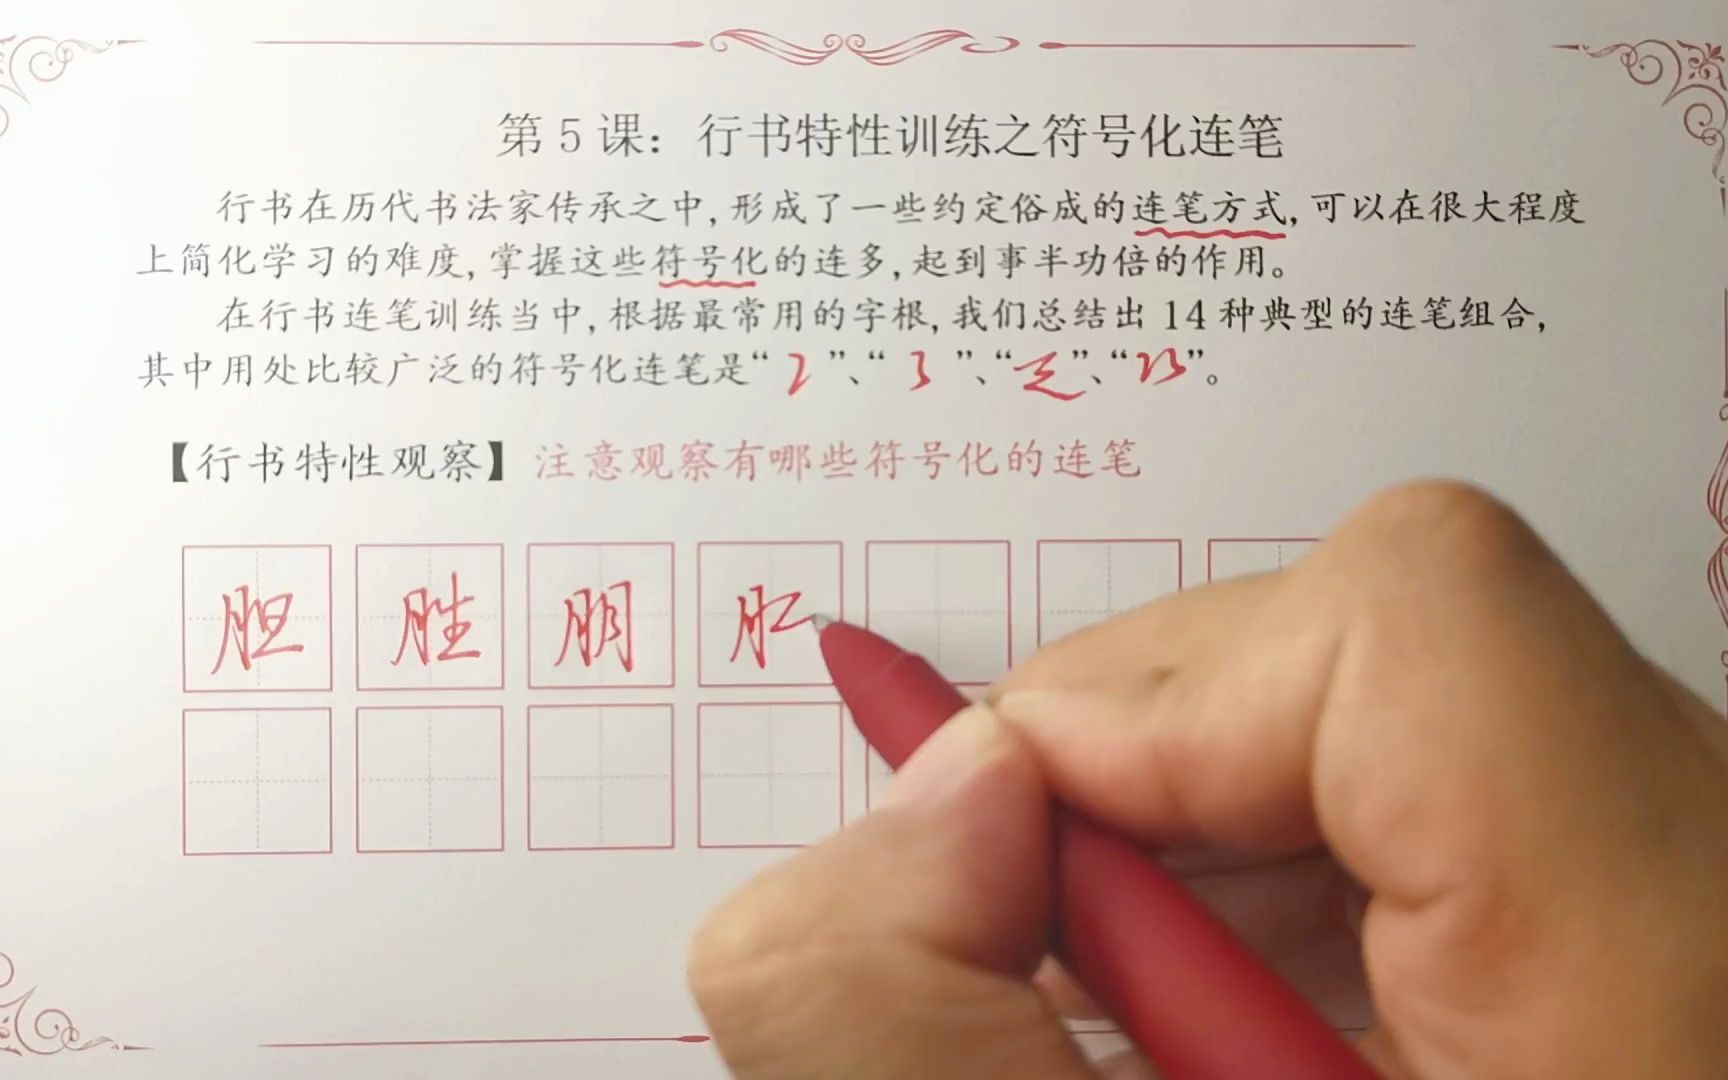 第5课：行书特性训练之符号化连笔
行书在历代书法家传承之中，形成了一些约定俗成的连笔方式，可以在很大程度
上简化学习的难度，掌握这些符号化的连多，起到事半功倍的作用。
在行书连笔训练当中，根据最常用的字根，我们总结出14种典型的连笔组合，
其中用处比较广泛的符号化连笔是“ ”、“ ”、“ ”、“ ”。
【行书特性观察】注意观察有哪些符号化的连笔
胆 胜 朋